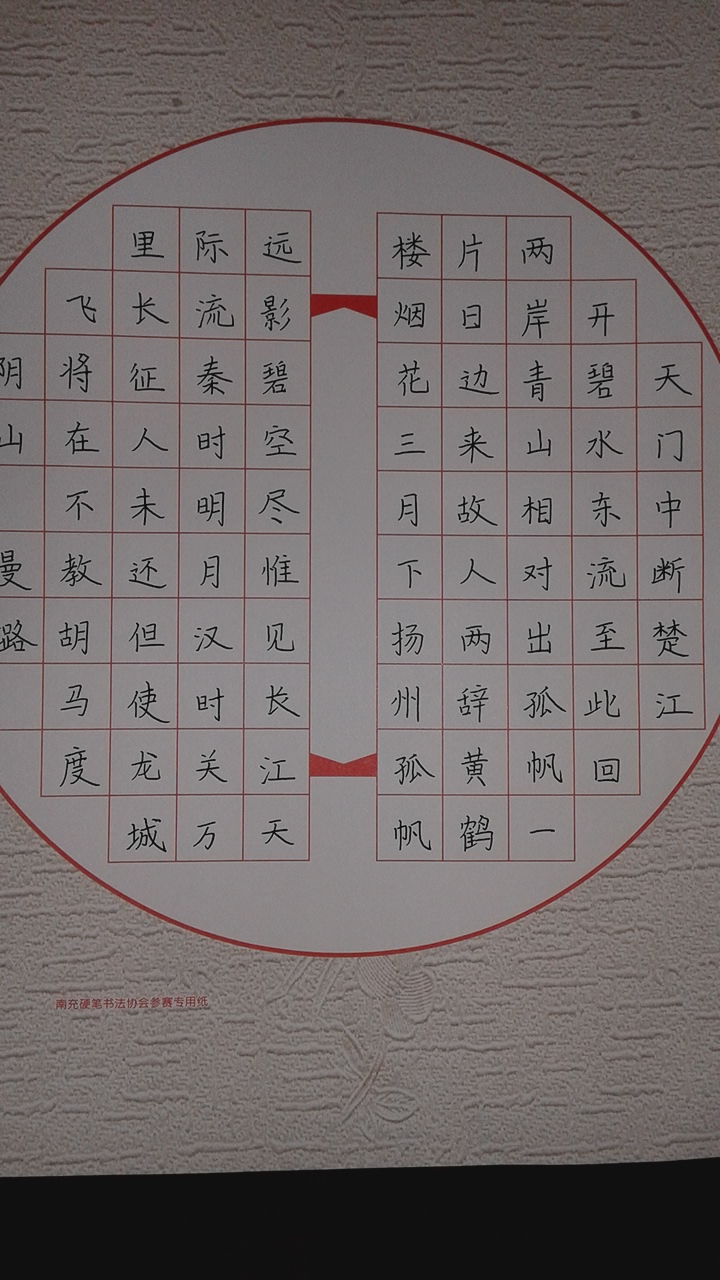 天门中断楚江
开碧水东流至此回
两岸青山相对出孤帆一
片日边来故人两辞黄鹤
楼烟花三月下扬州孤帆
远影碧空尽惟见长江天
际流秦时明月汉时关万
里长征人未还但使龙城
飞将在不教胡马度
阴山
南充硬笔书法协会参赛专用纸